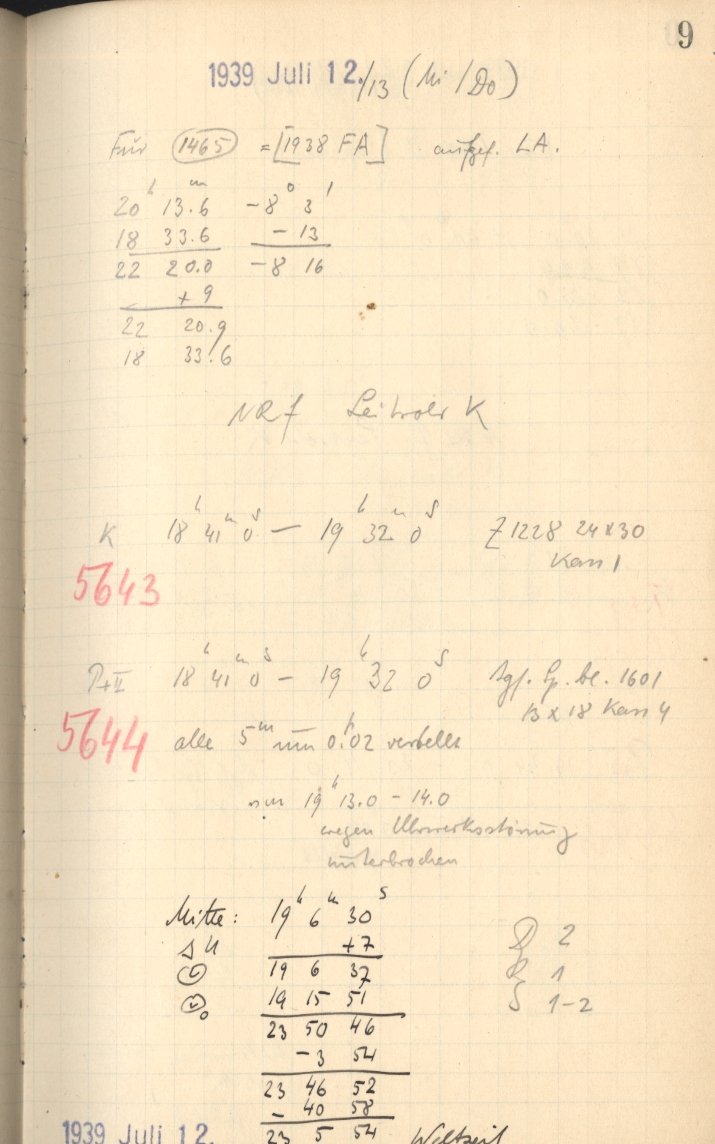 9
1939 Juli 12./13 (Mi/Do)
Für 1465 = [1938 FA] aufgef. LA.
20h 13m.6 -8° 3'
18 33.6 - 13
22 20.0 -8 16
+ 9
22 20.9
18 33.6
K
K 18h 41m 0s — 19h 32m 0s Z 1228 24x30
Kass 1
5643
18h 41m 0s — 19h 32 0s Agf. 1601
13 x 18 Kass 4
5644 alle 5m um 0h.02 verstellt
19h 13.0 - 14.0
wegen Uhrwerksstörung
unterbrochen
Mitte: 19h 6m 30s
+7
19 6 37
19 15 51
23 50 46
-3 54
23 46 52
- 40 58
1939 Juli 12. 23 5 54 Weltzeit
2
1
S 1-2